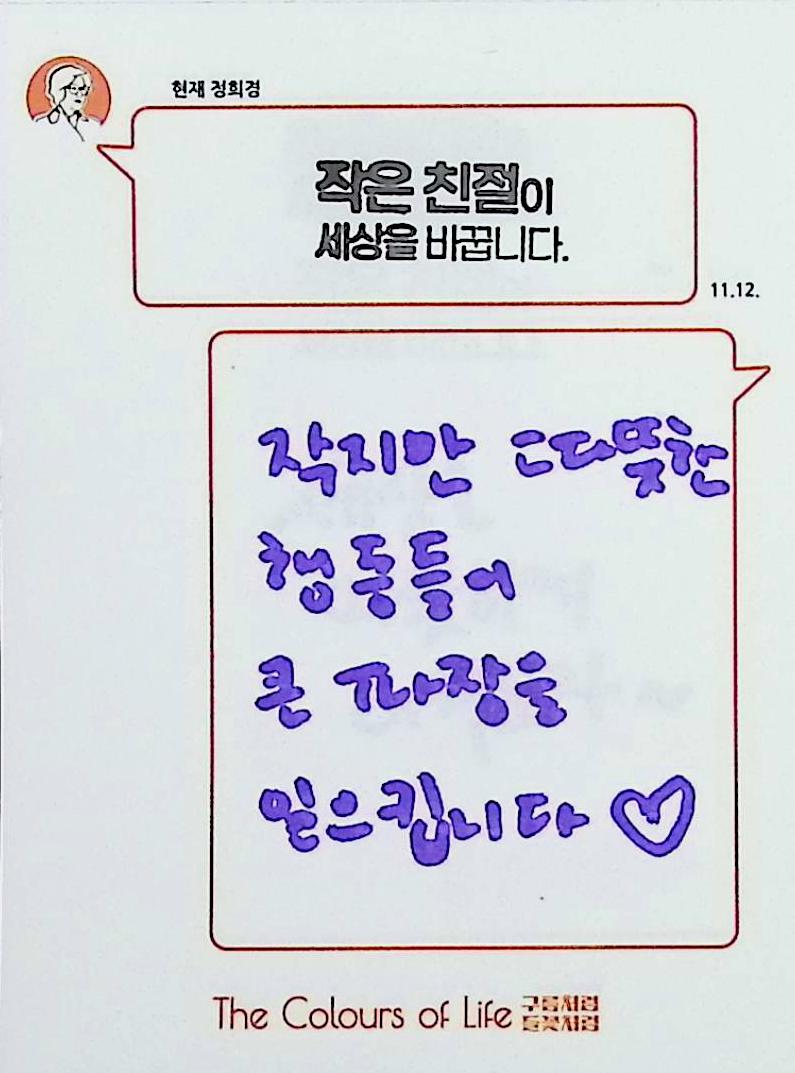 현재 정희경
작은 친절이
세상을 바꿉니다.
11.12.
작지만 따뜻한
행동들이
큰 파장을
일으킵니다 ♡
The Colours of Life 구름처럼
들꽃처럼